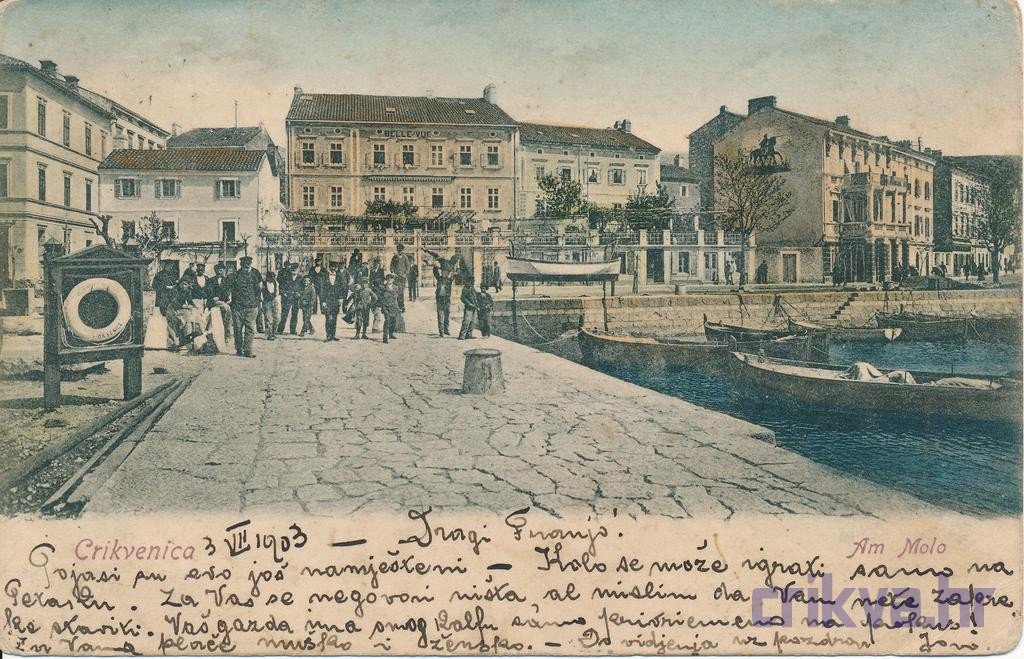 BELLE-VUE
Crikvenica 3 VII 1903 — Dragi Franjo!
Am Molo
Pojasi su evo još namješteni — Kolo se može igrati samo na
Pećašu. Za Vas se negovori ništa al mislim da Vam neće zapre
ke staviti. Vaš gazda ima smog samo privriemeno na
Za Vama plače muško i žensko. — Do vidjenja uz pozdrav
crikva.hr